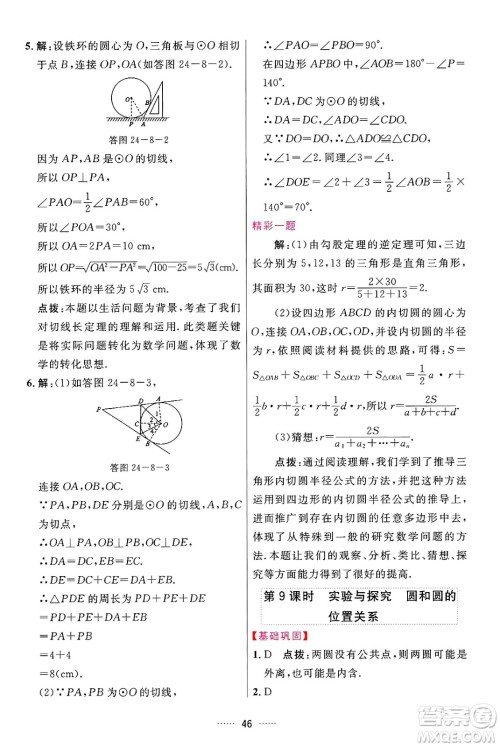 5. 解：设铁环的圆心为 O，三角板与⊙O 相切
于点 B，连接 OP，OA(如答图 24－8－2).
O
B
P A
答图 24－8－2
因为 AP，AB 是⊙O 的切线
所以 OP⊥PA
∠PAO＝1/2∠PAB＝60°
所以 ∠POA＝30°，OA＝10 cm
所以 OP＝√(OA²－PA²)＝√(100－25)＝5√3(cm)
所以铁环的半径为 5√3 cm.
点拨：本题以生活问题为背景，考查了我们
对切线长定理的理解和应用. 此类题关键
是将实际问题转化为数学问题，体现了数
学的转化思想.
6. 解：(1)如答图 24－8－3，
P
C
E
O
答图 24－8－3
连接 OA，OB，OC.
∵PA，PB，DE 是⊙O 的切线，A，B，C
为切点
∴OA⊥PA，OB⊥PB，OC⊥DE
∴PA＝PB＝4 cm，DA＝DC，EB＝EC
∴△PDE 的周长为 PD＋DE＋PE＝
PD＋DC＋EC＋PE＝
PD＋DA＋EB＋PE＝
PA＋PB＝
4＋4＝
8(cm)
(2)∵PA，PB 是⊙O 的切线
∴∠PAO＝∠PBO＝90°
在四边形 APBO 中，∠P＝40°
∴∠AOB＝140°
∵DA，DC 是⊙O 的切线
∴∠1＝∠2. 同理∠3＝∠4
∴∠DOE＝∠2＋∠3＝1/2∠AOB＝
1/2×140°＝70°.
精彩一题
解：(1)由勾股定理的逆定理可知，三边
长为 5，12，13 的三角形是直角三角形，其
面积为 30，这时 r＝(2×30)/(5＋12＋13)＝2.
(2)设四边形 ABCD 的内切圆的圆心为
O，连接圆心和四边形的顶点，根据
阅读材料提供的思路，可得：S＝
S△OAB＋S△OBC＋S△OCD＋S△ODA＝1/2a·r＋
1/2b·r＋1/2c·r＋1/2d·r，∴r＝2S/(a＋b＋c＋d)
(3)猜想：r＝2S/(a₁＋a₂＋…＋aₙ)
点拨：通过阅读理解，我们学到了推导三
角形内切圆半径公式的方法，并把它推广
到四边形的内切圆半径公式的推导上，进
而推广到正多边形内切圆的任意多边形中，体现
了从特殊到一般的研究数学问题的方
法. 本题让我们的观察、分析、类比、猜想、
探究能力得到了提高.
第 9 课时 实验与探究 圆和圆的
位置关系
【基础巩固】
1. D 点拨：两圆没有公共点，则两圆可能
外离，也可能内含.
2. D
46
作业帮
MXQE.COM